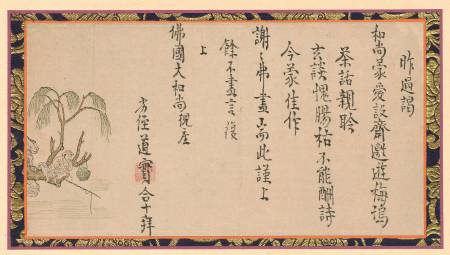 昨過謁
和尚蒙愛設齋邀遊梅塢
茶話親聆
玄談愧腸枯不能酬詩
今蒙佳作
謝々弗盡耑此謹上
餘不盡言復
上
佛國大和尚猊座
劣侄道實合十拜